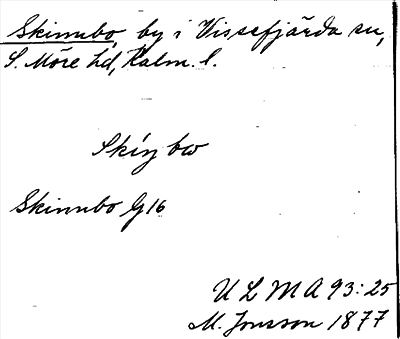 Skinnbo, by i Vissefjärda sn,
S. Möre hd, Kalm. l.
Skíŋ bω
Skinnbo G16
ULMA 93:25
M. Jonsson 1877